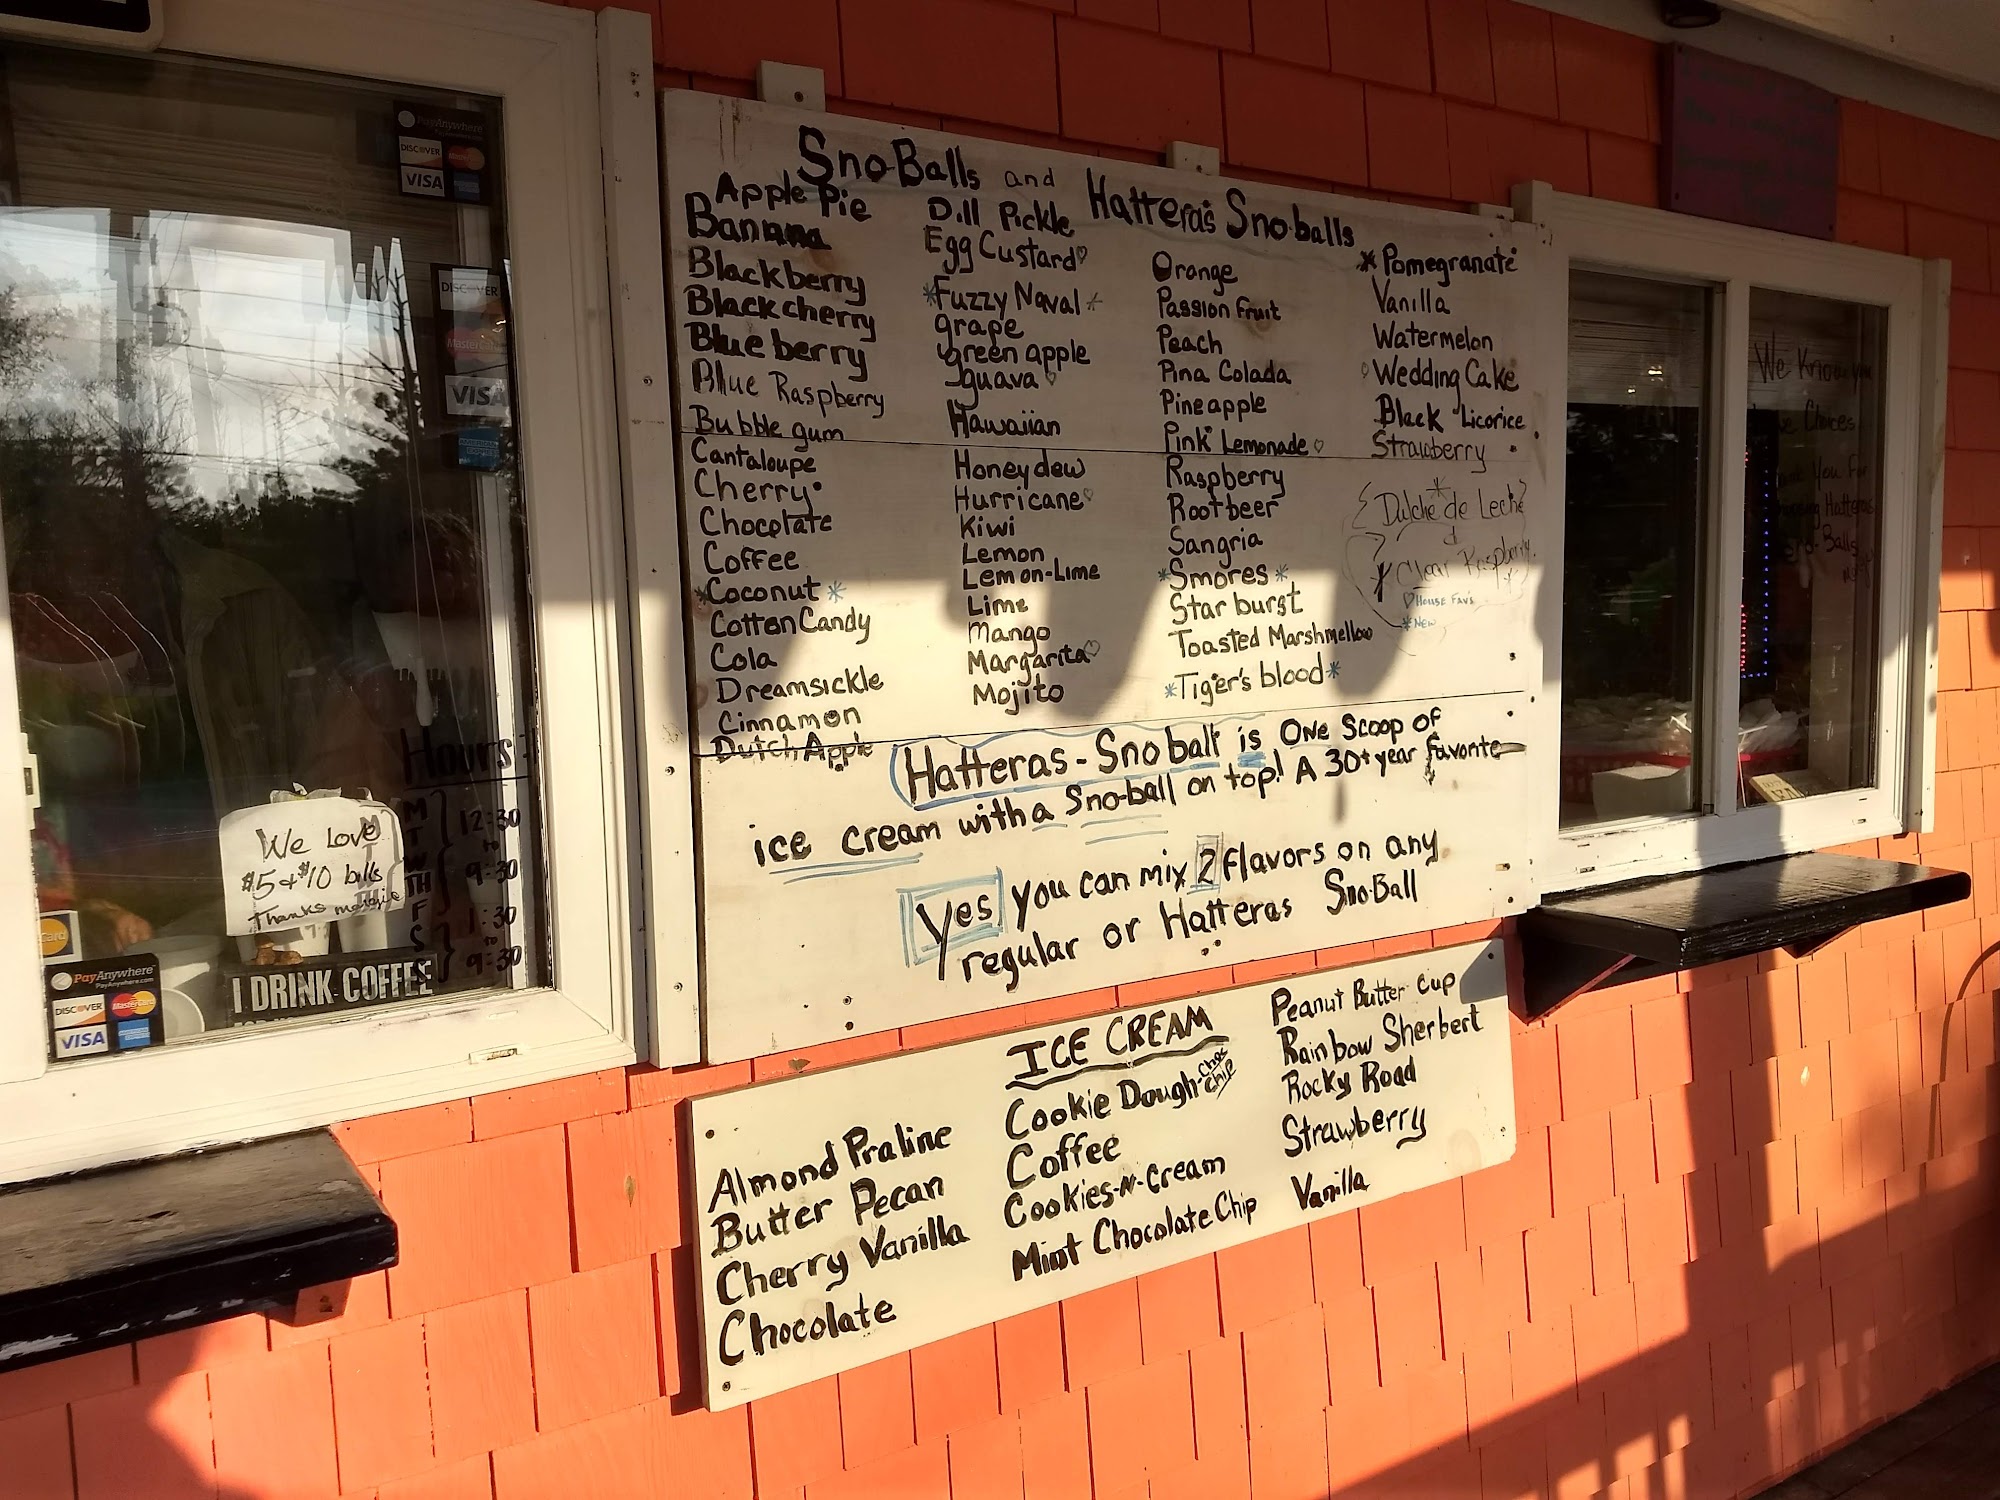 Sno-Balls and Hattera's Sno-balls
Apple Pie
Banana
Blackberry
Blackcherry
Blueberry
Blue Raspberry
Bubble gum
Cantaloupe
Cherry
Chocolate
Coffee
*Coconut*
Cotton Candy
Cola
Dreamsickle
Cinnamon
Dutch Apple
Dill Pickle
Egg Custard♡
*Fuzzy Naval*
grape
green apple
guava♡
Hawaiian
Honeydew
Hurricane♡
Kiwi
Lemon
Lemon-Lime
Lime
Mango
Margarita♡
Mojito
Orange
Passion Fruit
Peach
Pina Colada
Pineapple
Pink Lemonade♡
Raspberry
Rootbeer
Sangria
*Smores*
Starburst
Toasted Marshmellow
*Tiger's blood*
*Pomegranate
Vanilla
Watermelon
♡Wedding Cake
Black Licorice
Strawberry
Dulche de Leche
&
Clear Raspberry
♡House Fav's
*New
Hatteras-Snoball is One Scoop of
ice cream with a Sno-ball on top! A 30+ year favorite
Yes you can mix 2 flavors on any
regular or Hatteras SnoBall
ICE CREAM
Almond Praline
Butter Pecan
Cherry Vanilla
Chocolate
Cookie Dough-Choc Chip
Coffee
Cookies-N-Cream
Mint Chocolate Chip
Peanut Butter Cup
Rainbow Sherbert
Rocky Road
Strawberry
Vanilla
PayAnywhere
DISCOVER
VISA
DISCOVER
MasterCard
VISA
AMERICAN EXPRESS
Hours:
M
T
W
TH
F
12:30
to
9:30
S
S
1:30
to
9:30
We Love
$5 & $10 bills
Thanks margie
I DRINK COFFEE
Card
PayAnywhere
PayAnywhere.com
DISCOVER MasterCard
VISA
We Know you
Choices
You For
Hatteras
Sno-Balls